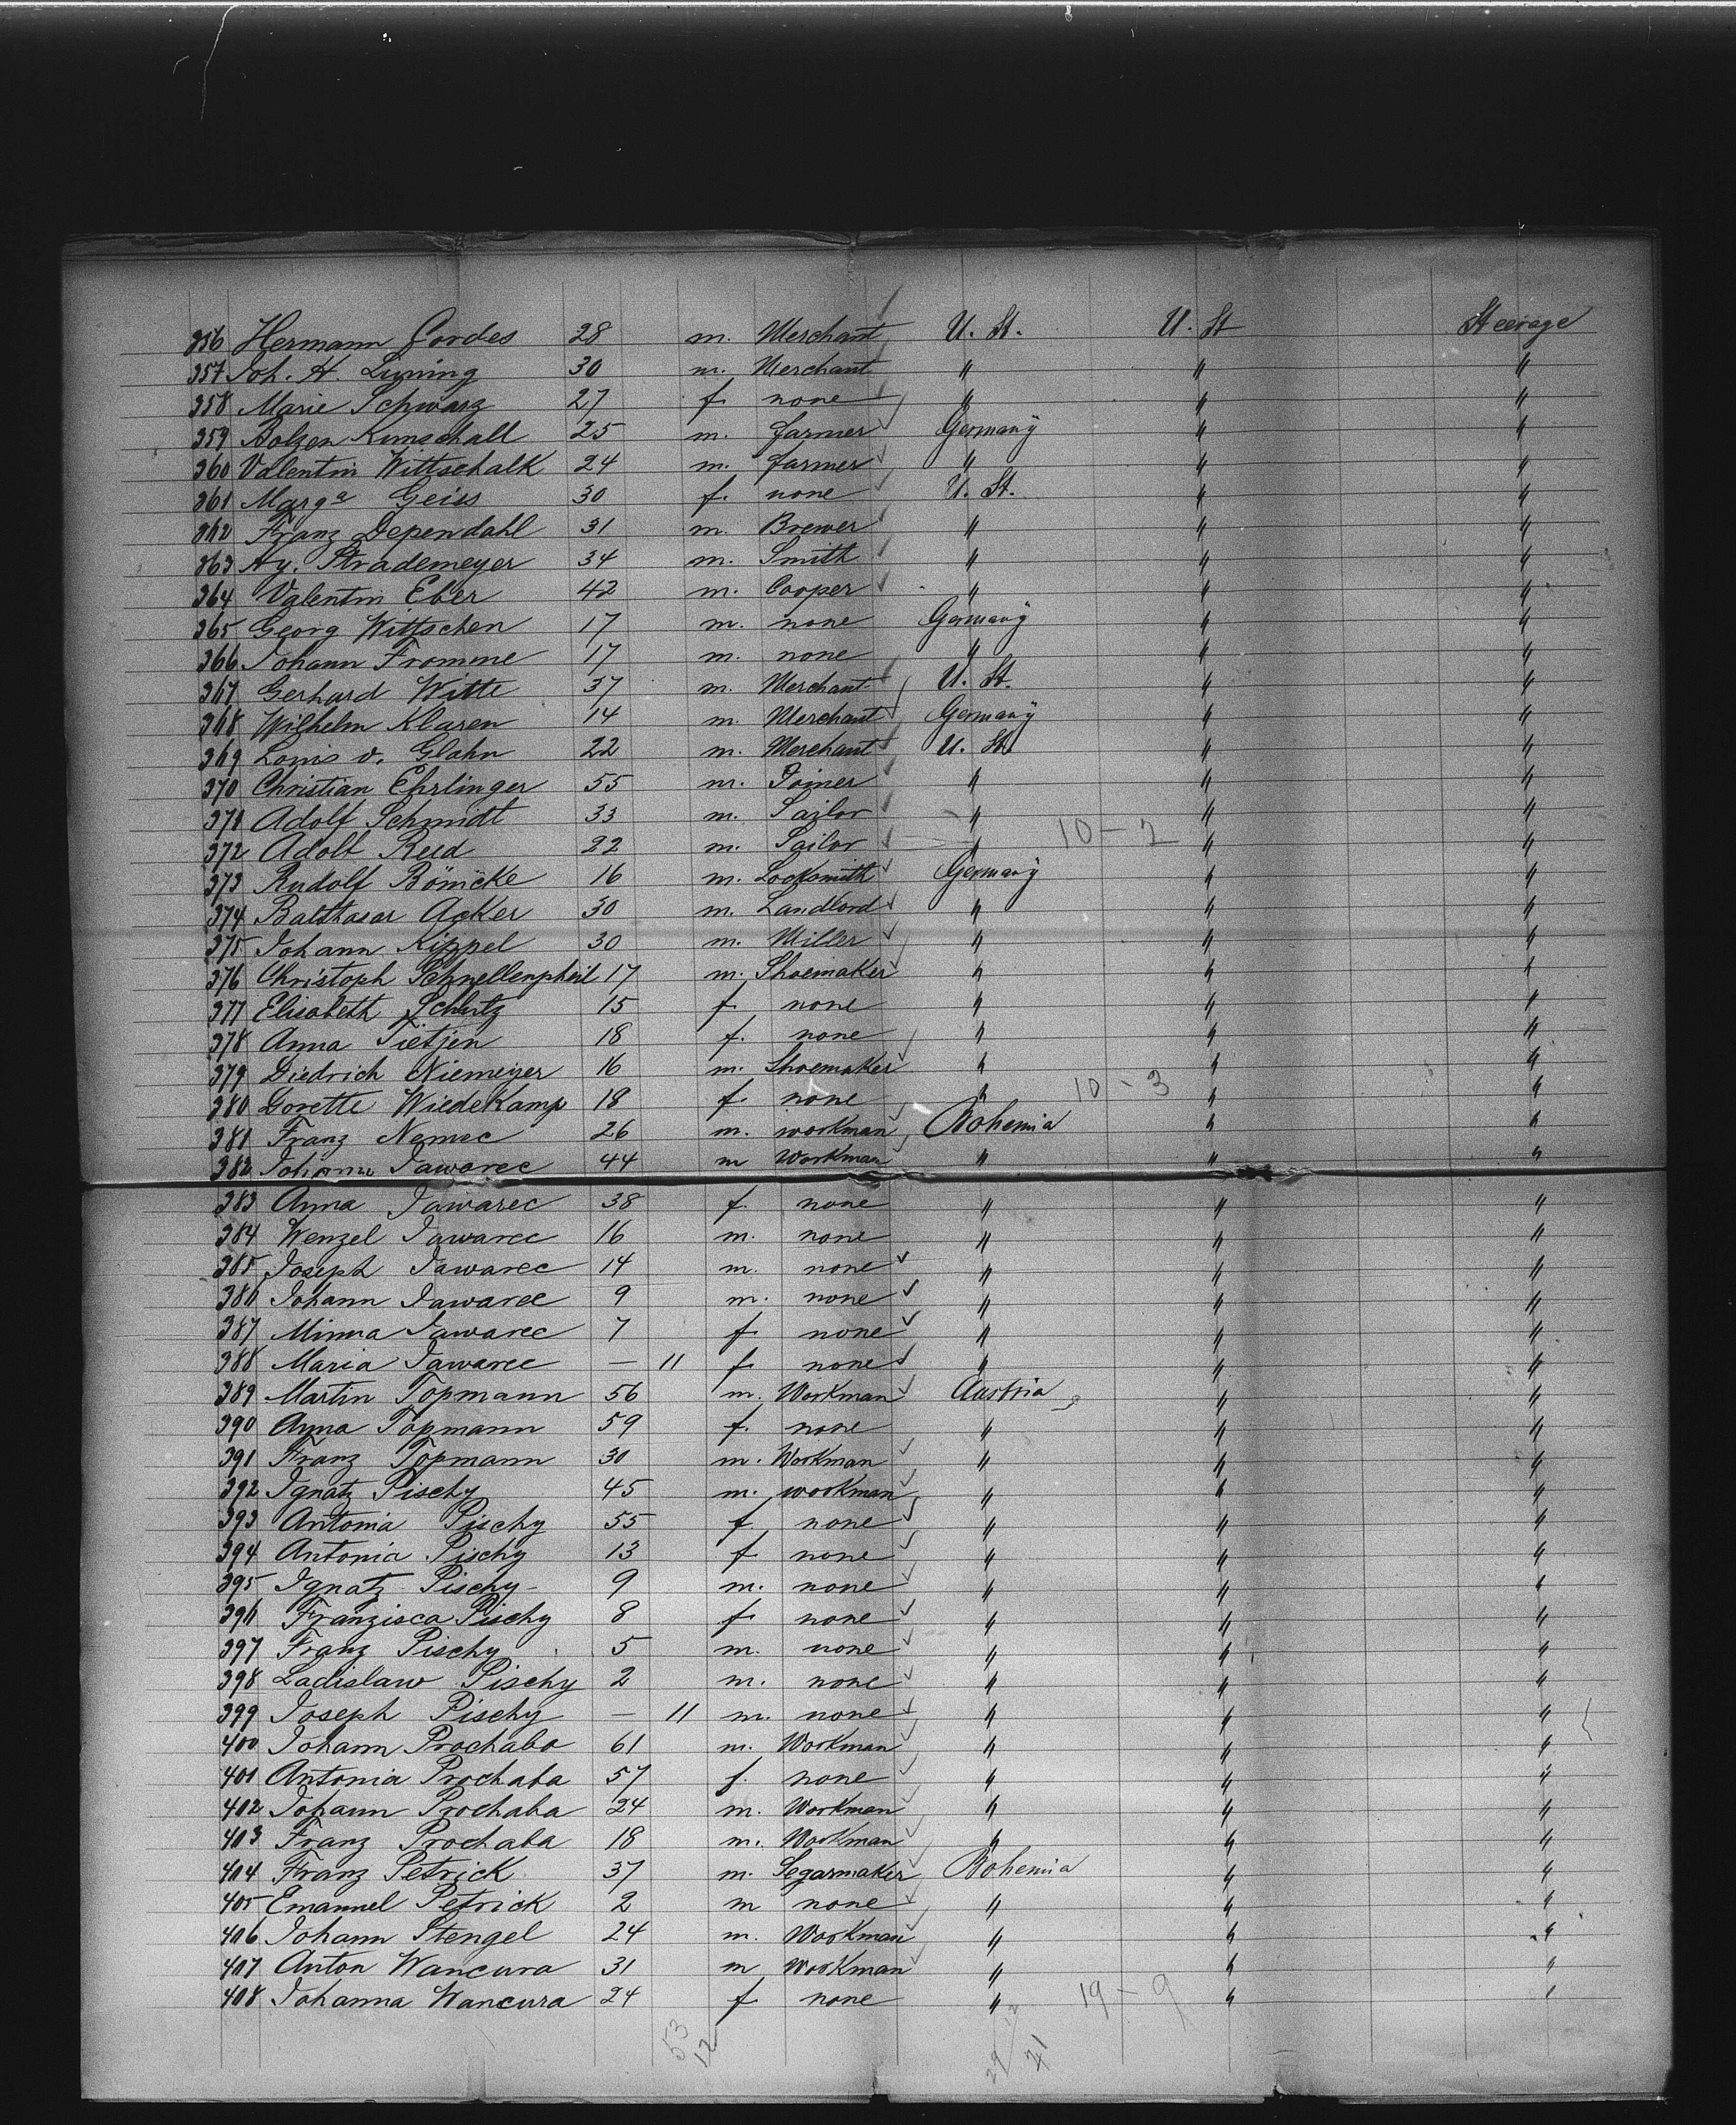 356 Hermann Cordes 28 m. Merchant U. St. U. St Steerage
357 Joh. H. Lüning 30 m. Merchant " " "
358 Marie Schwarz 27 f. none " " "
359 Bolzen Kunschall 25 m. farmer Germany " "
360 Valentin Wittschalk 24 m. farmer " " "
361 Marga Geiss 30 f. none U. St. " "
362 Franz Dependahl 31 m. Brewer " " "
363 Hy. Strademeyer 34 m. Smith " " "
364 Valentin Eber 42 m. Cooper " " "
365 Georg Wittschen 17 m. none Germany " "
366 Johann Fromme 17 m. none " " "
367 Gerhard Witte 37 m. Merchant U. St. " "
368 Wilhelm Klaren 14 m. Merchant Germany " "
369 Louis v. Glahn 22 m. Merchant U. St. " "
370 Christian Ehrlinger 55 m. Joiner " " "
371 Adolf Schmidt 33 m. Sailor " " "
372 Adolf Rud 22 m. Sailor " 10-2 " "
373 Rudolf Bönicke 16 m. Locksmith Germany " "
374 Balthasar Acker 30 m. Landlord " " "
375 Johann Kippel 30 m. Miller " " "
376 Christoph Schnellenpheil 17 m. Shoemaker " " "
377 Elisabeth Schutz 15 f. none " " "
378 Anna Tietjen 18 f. none " " "
379 Diedrich Niemeyer 16 m. Shoemaker " " "
380 Dorette Wiedekamp 18 f. none " 10-3 " "
381 Franz Nemec 26 m. workman Bohemia " "
382 Johann Jawarec 44 m Workman " " "
383 Anna Jawarec 38 f. none " " "
384 Wenzel Jawarec 16 m. none " " "
385 Joseph Jawarec 14 m. none " " "
386 Johann Jawarec 9 m. none " " "
387 Minna Jawarec 7 f. none " " "
388 Maria Jawarec — 11 f. none " " "
389 Martin Topmann 56 m. Workman Austria " "
390 Anna Topmann 59 f. none " " "
391 Franz Topmann 30 m. Workman " " "
392 Ignatz Pischy 45 m. workman " " "
393 Antonia Pischy 55 f. none " " "
394 Antonia Pischy 13 f none " " "
395 Ignatz Pischy 9 m. none " " "
396 Franzisca Pischy 8 f. none " " "
397 Franz Pischy 5 m. none " " "
398 Ladislaw Pischy 2 m. none " " "
399 Joseph Pischy — 11 m. none " " "
400 Johann Prochaba 61 m. Workman " " "
401 Antonia Prochaba 57 f. none " " "
402 Johann Prochaba 24 m. Workman " " "
403 Franz Prochaba 18 m. Workman " " "
404 Franz Petrick 37 m. Segarmaker Bohemia " "
405 Emanuel Petrick 2 m none " " "
406 Johann Stengel 24 m. Workman " " "
407 Anton Wancura 31 m Workman " " "
408 Johanna Wancura 24 f none " 19-9 " "
53
12